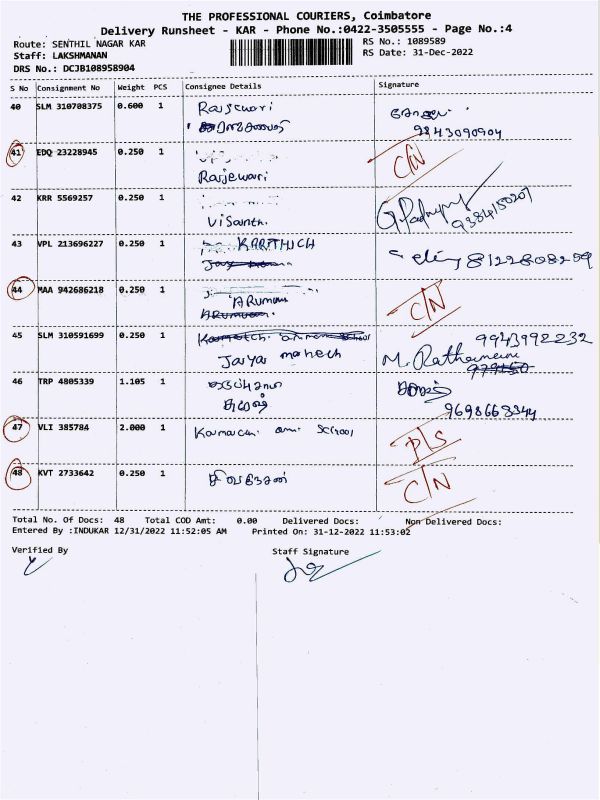 THE PROFESSIONAL COURIERS, Coimbatore
Delivery Runsheet - KAR - Phone No.:0422-3505555 - Page No.:4
Route: SENTHIL NAGAR KAR
RS No.: 1089589
Staff: LAKSHMANAN
RS Date: 31-Dec-2022
DRS No.: DCJB108958904
S No Consignment No Weight PCS Consignee Details Signature
40 SLM 310708375 0.600 1 Rajeswari
9843090904
41 EDQ 23228945 0.250 1 C/N
Rajewari
42 KRR 5569257 0.250 1 G.Padmapriy 9384150207
Visanth.
43 VPL 213696227 0.250 1 KARTHICH
8122808259
44 MAA 942686218 0.250 1 C/N
ARumuu
45 SLM 310591699 0.250 1 9943992232
Jaya mahech M. Rathameene
46 TRP 4805339 1.105 1
9698668344
47 VLI 385784 2.000 1 Kamatchi ami School P/S
48 KVT 2733642 0.250 1 சிவநேசன் C/N
Total No. Of Docs: 48 Total COD Amt: 0.00 Delivered Docs: Non Delivered Docs:
Entered By :INDUKAR 12/31/2022 11:52:05 AM Printed On: 31-12-2022 11:53:02
Verified By Staff Signature